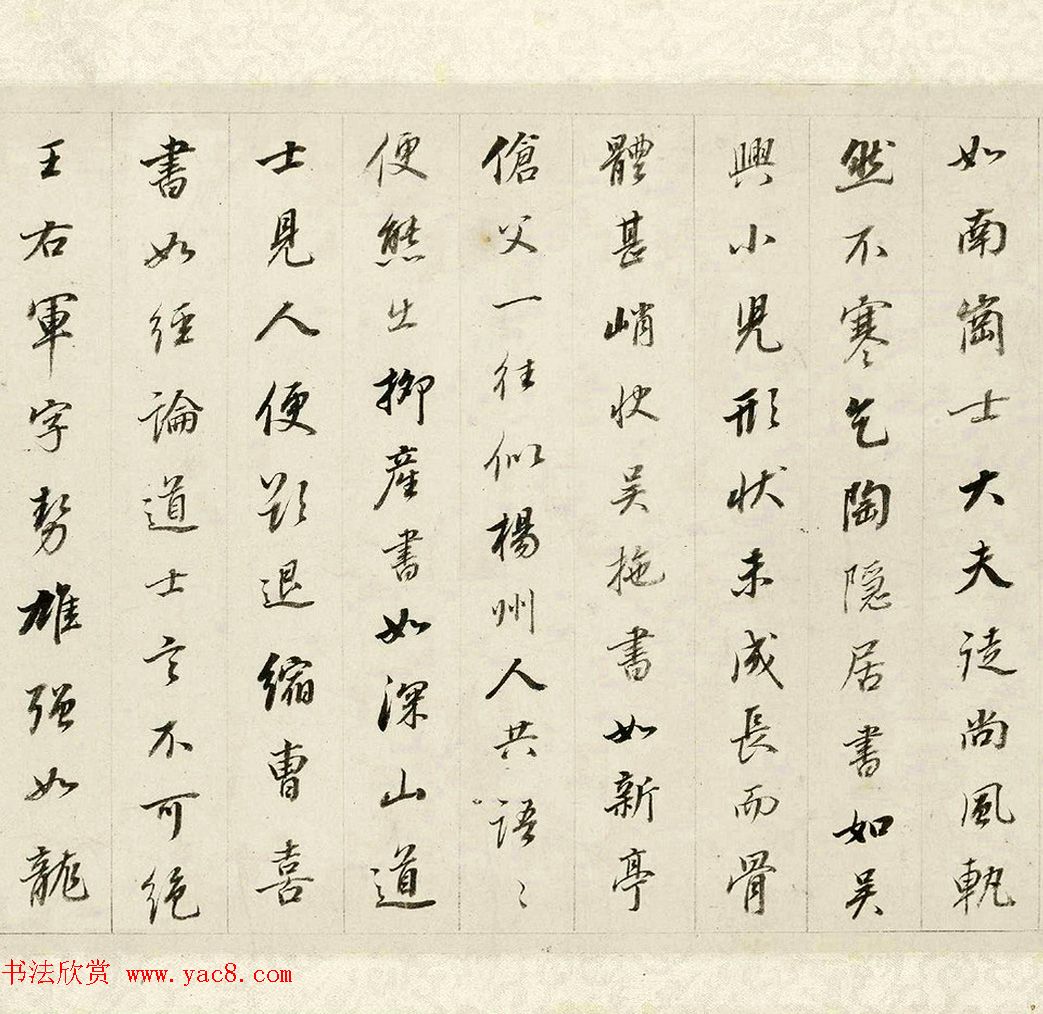 如南崗士大夫徒尚風軌
然不寒乞陶隱居書如吳
興小児形狀未成長而骨
體甚峭快吳拖書如新亭
傖父一往似楊州人共語〻
便態出抑產書如深山道
士見人便欲退縮曹喜
書如經論道士言不可絕
王右軍字勢雄强如龍
书法欣赏 www.yac8.com